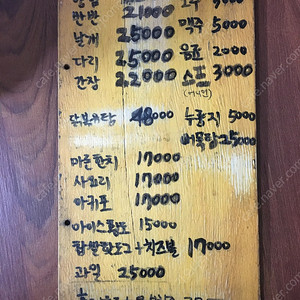 반반 21000
날개 25000 맥주 5000
다리 25000 음료 2000
간장 22,000 소프 3000
닭볶음탕 48000 누룽지 5000
어묵탕 25000
마른한치 17000
사쏘리 17000
아귀포 17000
아이스황도 15000
찹쌀핫도그+치즈볼 17000
과일 25000